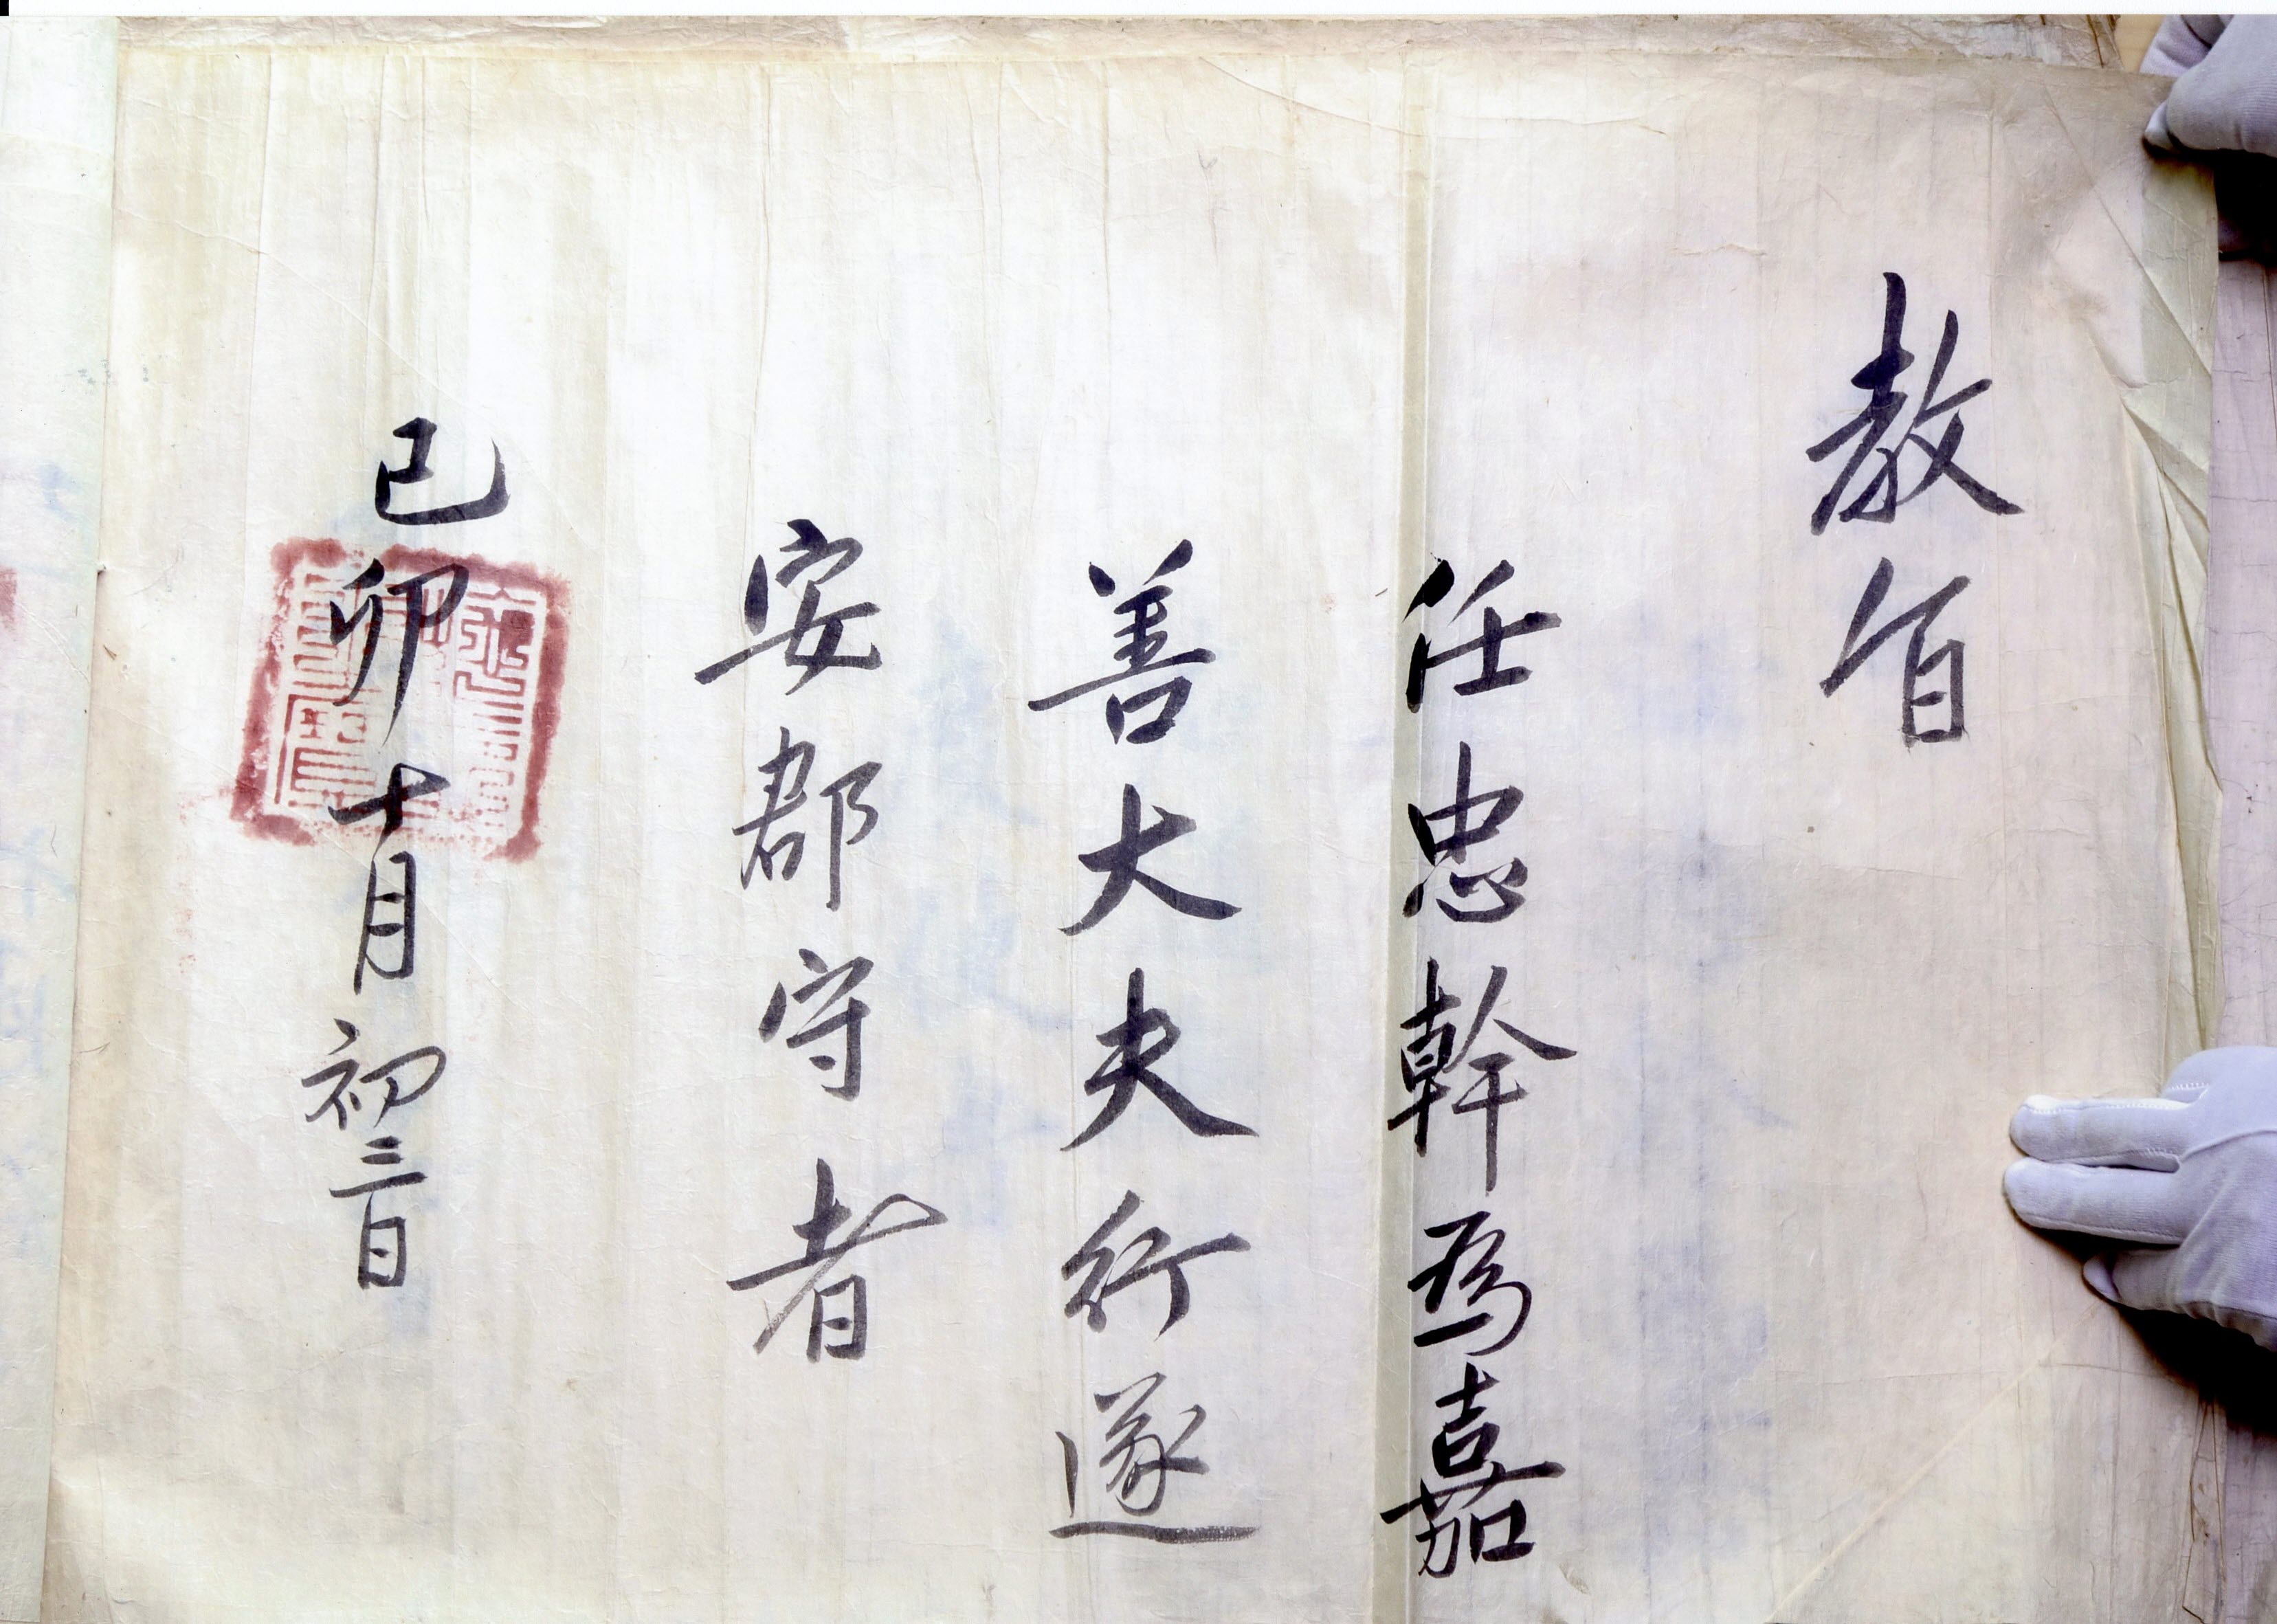 教旨
任忠幹爲嘉
善大夫行遂
安郡守者
己卯十月初三日